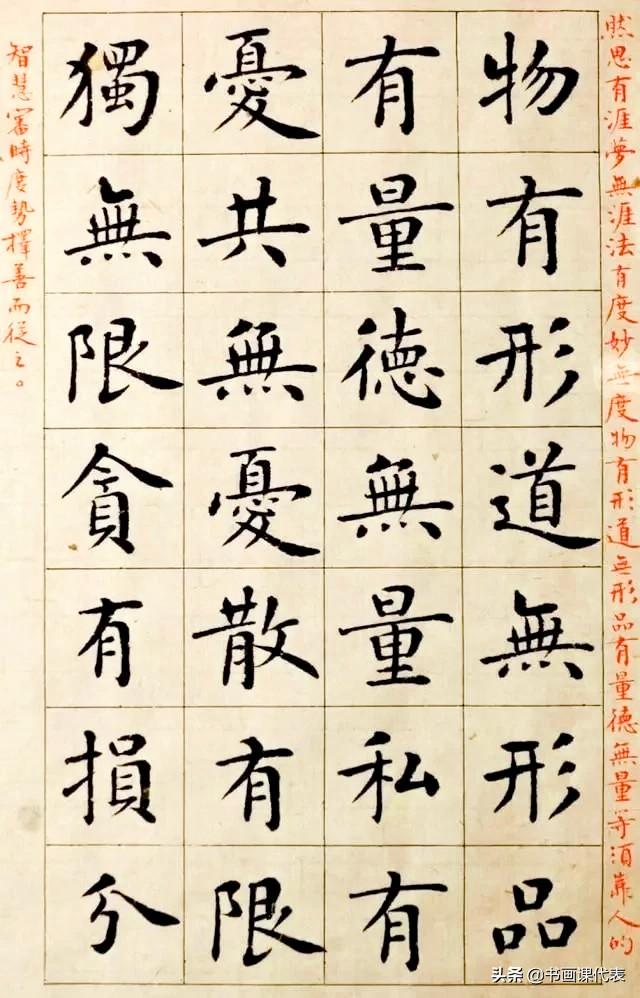 然思有涯夢無涯法有度妙無度物有形道無形品有量德無量等須靠人的
物有形道無形品
有量德無量私有
憂共無憂散有限
獨無限貪有損分
智慧審時度勢擇善而從之。
头条 @书画课代表